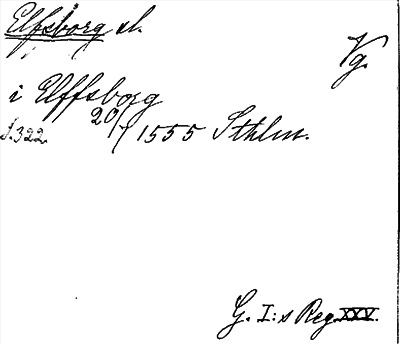 Elfsborg sl.
Vg.
i Elffsborg
s.322. 20/7 1555 Sthlm.
G. I:s Reg. XXV.